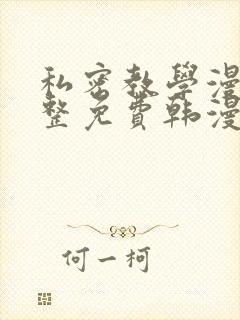 私密教學漫
整免費韩漫
何一柯